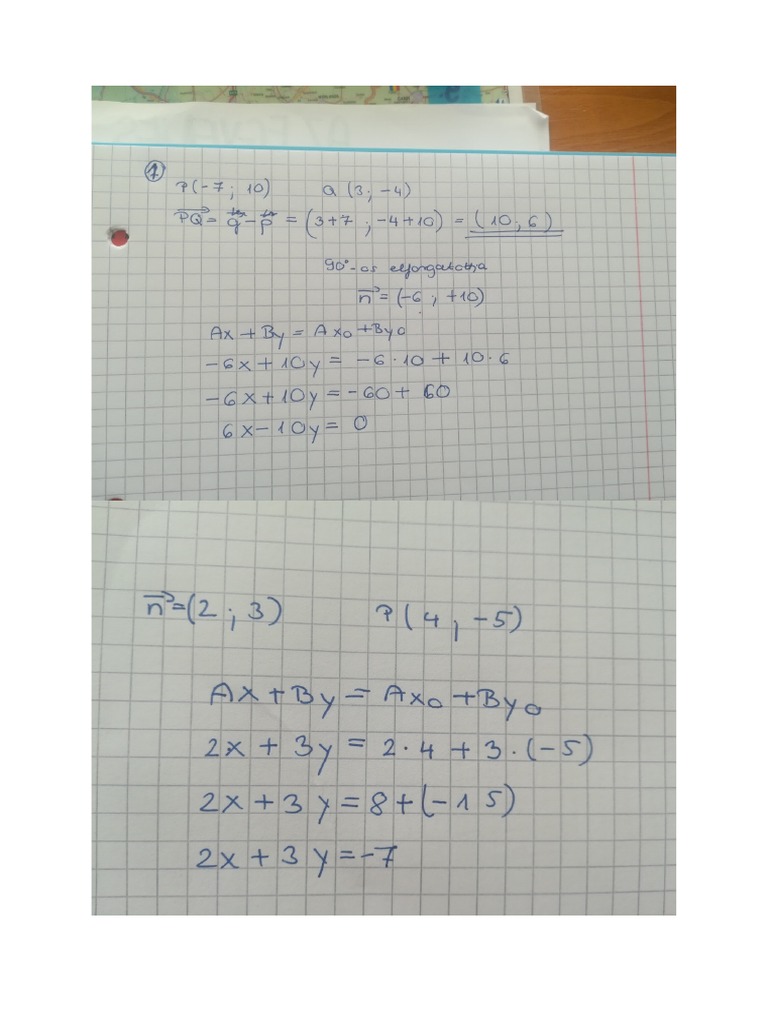 1
P(-7; 10) Q(3; -4)
PQ = q - p = (3+7 ; -4+10) = (10; 6)
90°-os elforgatottja
n = (-6 ; +10)
Ax + By = Ax₀ + By₀
-6x + 10y = -6·10 + 10·6
-6x + 10y = -60 + 60
6x - 10y = 0
n = (2 ; 3) P(4, -5)
Ax + By = Ax₀ + By₀
2x + 3y = 2·4 + 3·(-5)
2x + 3y = 8 + (-15)
2x + 3y = -7